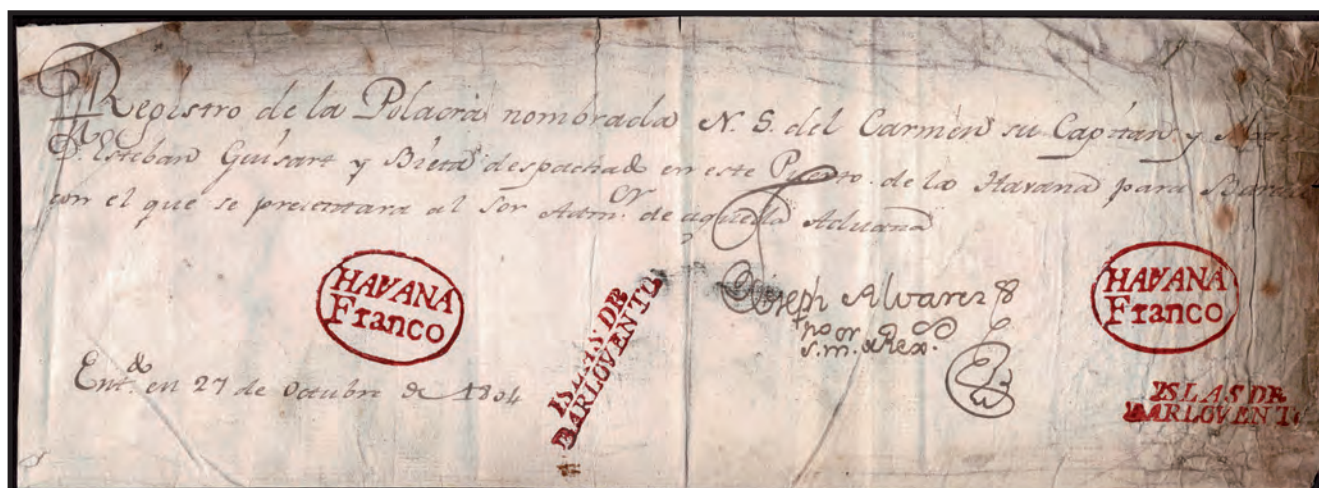 Registro de la Polacra nombrada N. S. del Carmen su Capitan y
D. Esteban Guisart y despachado en este Puerto de la Havana para
con el que se presentara al Sor Admor. de aquella Aduana
HAVANA
Franco
ISLAS DE
BARLOVENTO
Joseph Alvarez
s.m.
HAVANA
Franco
ISLAS DE
BARLOVENTO
Entdo. en 27 de Octubre de 1804